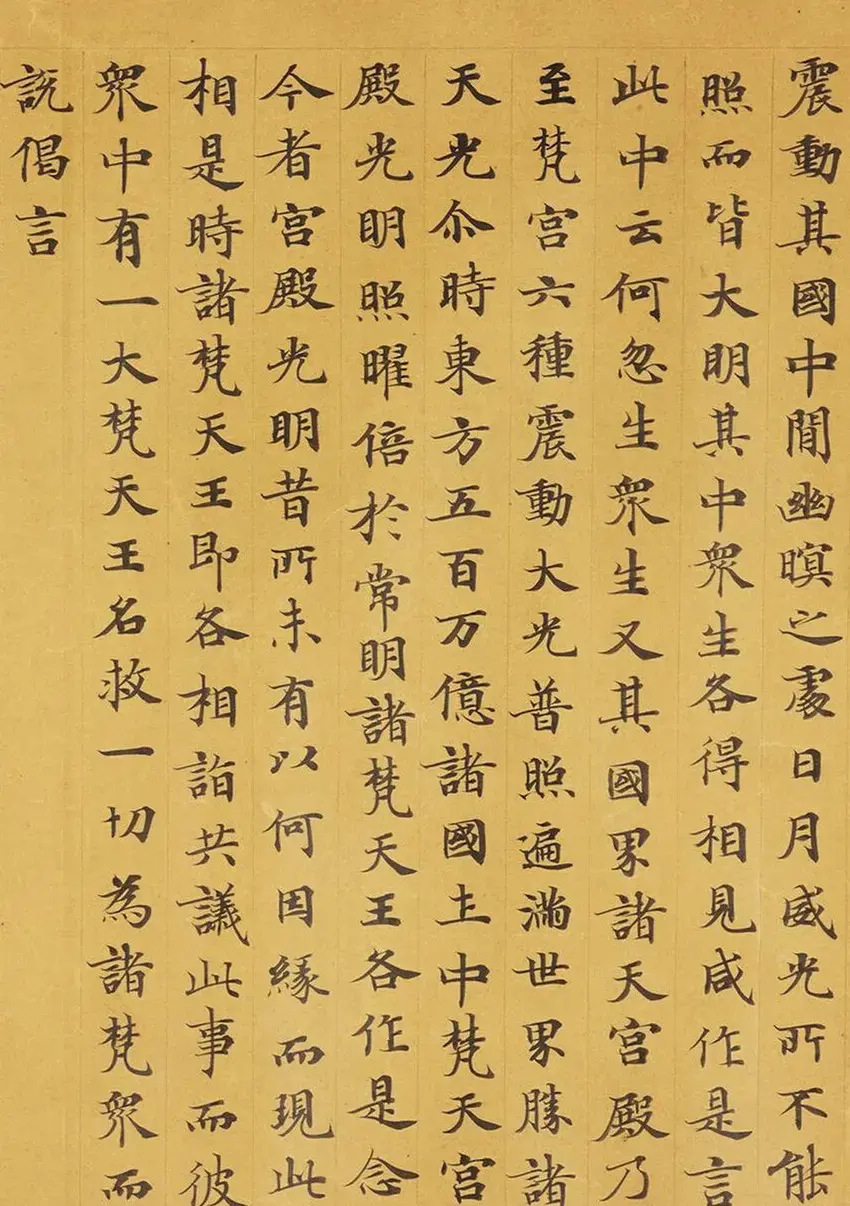 震動其國中間幽暝之處日月威光所不能
照而皆大明其中衆生各得相見咸作是言
此中云何忽生衆生又其國界諸天宮殿乃
至梵宮六種震動大光普照遍滿世界勝諸
天光尒時東方五百万億諸國土中梵天宮
殿光明照曜倍於常明諸梵天王各作是念
今者宮殿光明昔所未有以何因緣而現此
相是時諸梵天王即各相詣共議此事而彼
衆中有一大梵天王名救一切為諸梵衆而
說偈言